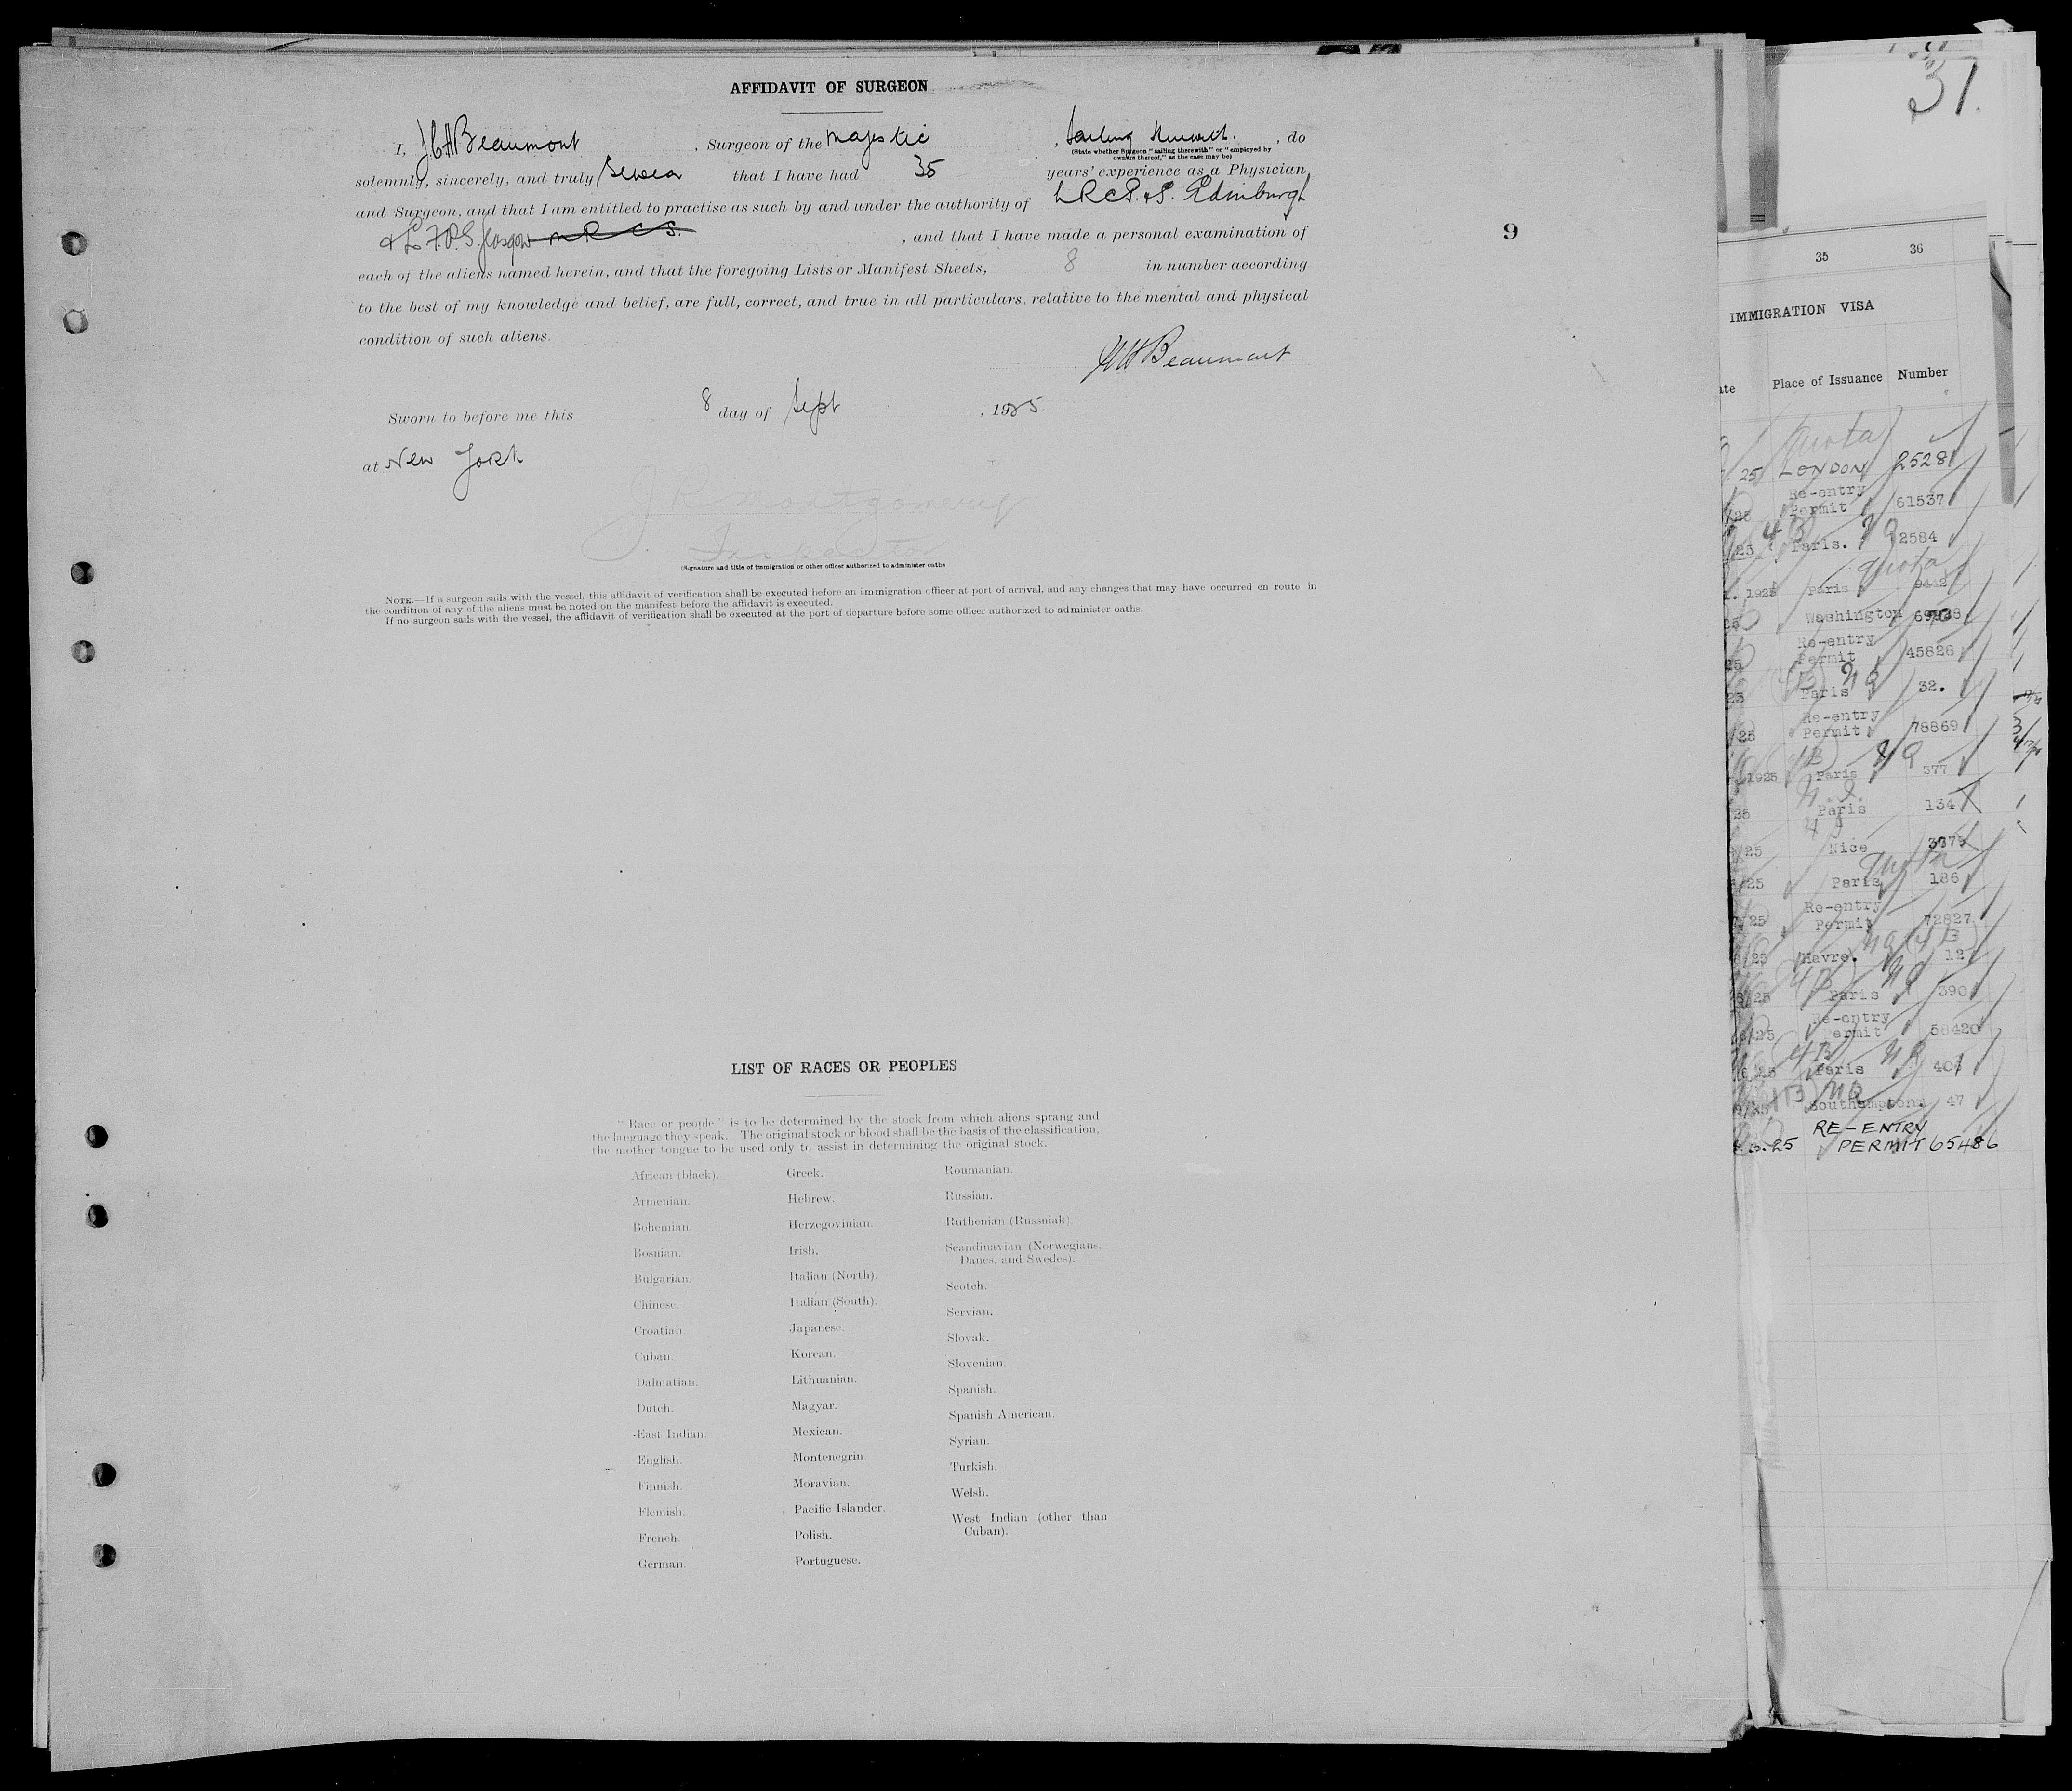 AFFIDAVIT OF SURGEON
I, J C H Beaumont, Surgeon of the Majestic, Sailing therewith., do
(State whether Surgeon "sailing therewith" or "employed by
owners thereof," as the case may be)
solemnly, sincerely, and truly Swear that I have had 35 years' experience as a Physician
and Surgeon, and that I am entitled to practise as such by and under the authority of L R C P. & S. Edinburgh
& L. F. P. S. Glasgow M R C S., and that I have made a personal examination of
9
each of the aliens named herein, and that the foregoing Lists or Manifest Sheets, 8 in number according
to the best of my knowledge and belief, are full, correct, and true in all particulars, relative to the mental and physical
condition of such aliens.
Beaumont
Sworn to before me this 8 day of Sept, 1925
at New York
J R Montgomery
Inspector
(Signature and title of immigration or other officer authorized to administer oaths
NOTE.—If a surgeon sails with the vessel, this affidavit of verification shall be executed before an immigration officer at port of arrival, and any changes that may have occurred en route in
the condition of any of the aliens must be noted on the manifest before the affidavit is executed.
If no surgeon sails with the vessel, the affidavit of verification shall be executed at the port of departure before some officer authorized to administer oaths.
LIST OF RACES OR PEOPLES
"Race or people" is to be determined by the stock from which aliens sprang and
the language they speak. The original stock or blood shall be the basis of the classification,
the mother tongue to be used only to assist in determining the original stock.
African (black).
Armenian.
Bohemian.
Bosnian.
Bulgarian.
Chinese.
Croatian.
Cuban.
Dalmatian.
Dutch.
East Indian.
English.
Finnish.
Flemish.
French.
German.
Greek.
Hebrew.
Herzegovinian.
Irish.
Italian (North).
Italian (South).
Japanese.
Korean.
Lithuanian.
Magyar.
Mexican.
Montenegrin.
Moravian.
Pacific Islander.
Polish.
Portuguese.
Roumanian.
Russian.
Ruthenian (Russniak).
Scandinavian (Norwegians,
Danes, and Swedes).
Scotch.
Servian.
Slovak.
Slovenian.
Spanish.
Spanish American.
Syrian.
Turkish.
Welsh.
West Indian (other than
Cuban).
31.
35 36
IMMIGRATION VISA
Place of Issuance Number
Quota
25 LONDON 2528
Re-entry
25 Permit 61537
4 B N Q
25 Paris. 2584
Quota
1925 Paris 9442
25 Washington
Re-entry
25 Permit 45828
N Q
25 Paris 32.
Re-entry
25 Permit 78869
4B N Q
1925 Paris 577
N Q
25 Paris 134
25 Nice
Quota
25 Paris 186
Re-entry
25 Permit 72827
N Q (4 B)
25 Havre. 12
(4 B) N Q
25 Paris 390
Re-entry
25 Permit 58420
(4B) N Q
25 Paris
N Q
25 Southampton. 47
RE-ENTRY
25 PERMIT 65486